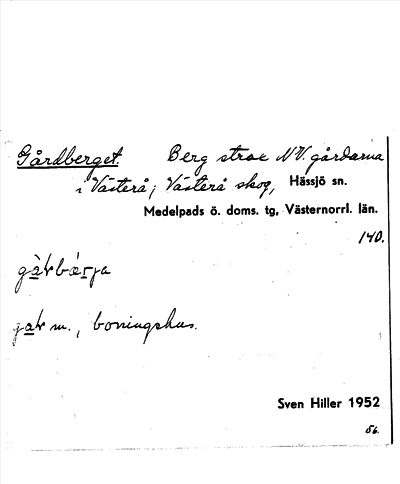 Gårdberget. Berg strax NV. gårdarna
i Västerå; Västerå skog, Hässjö sn.
Medelpads ö. doms. tg, Västernorrl. län.
140.
gàṛbæ̀rja
gaṛ m., boningshus.
Sven Hiller 1952
56.